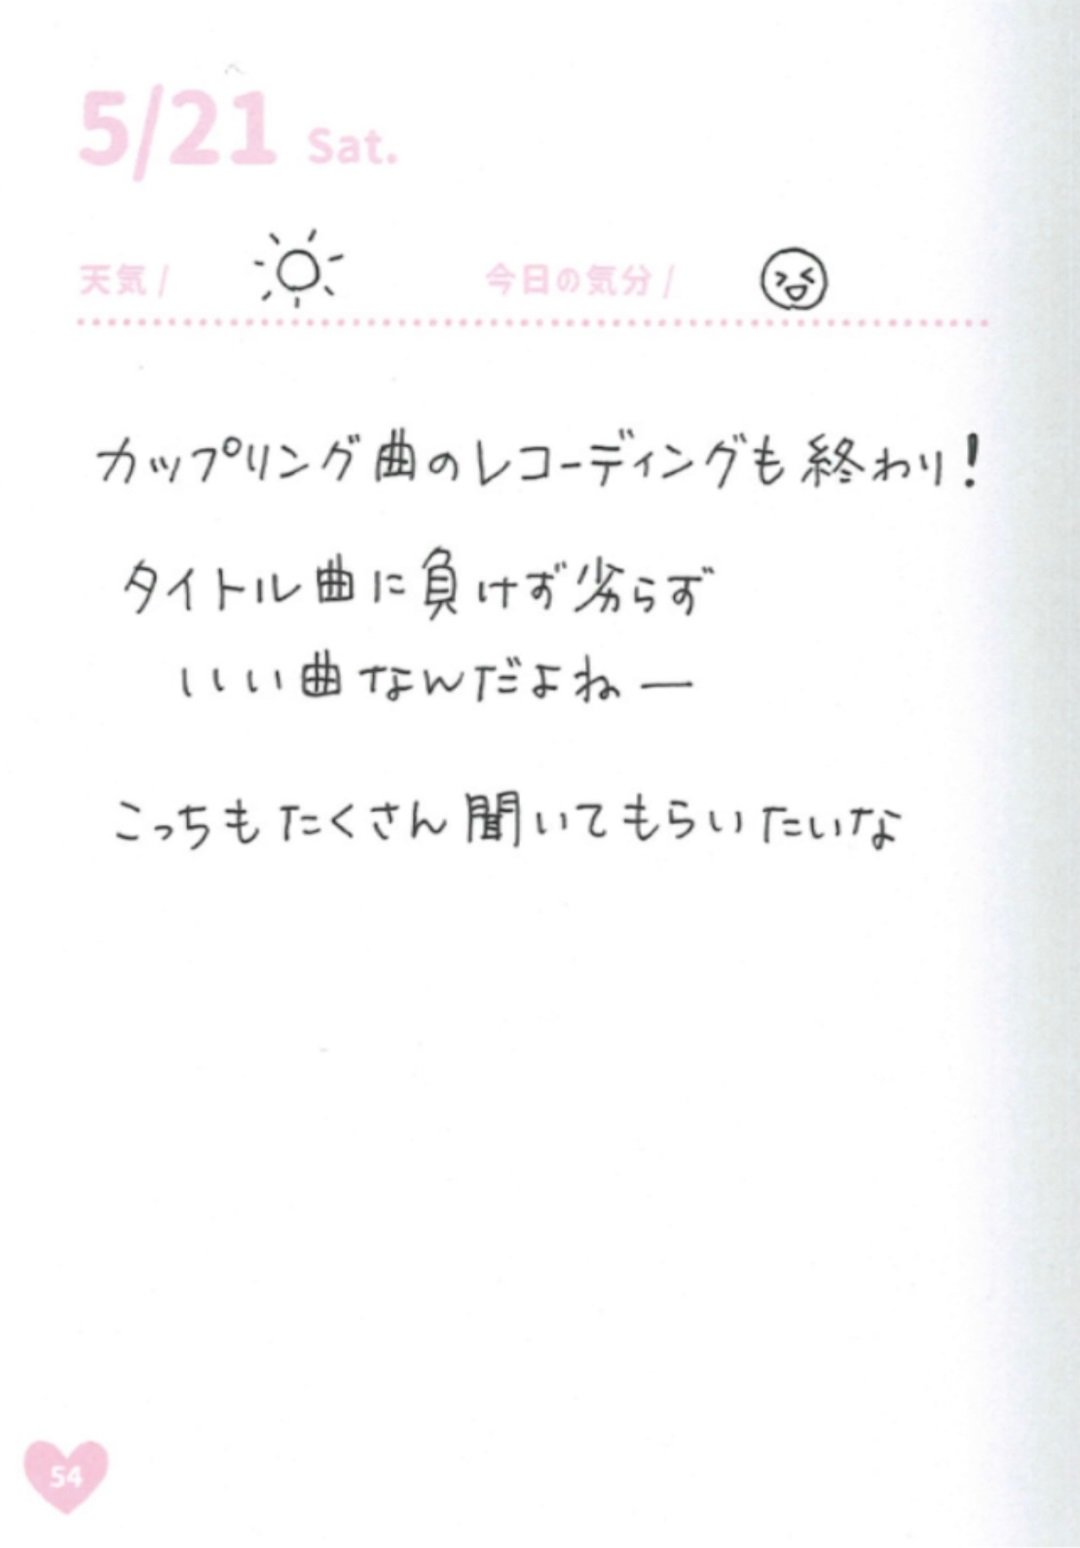 5/21 Sat.
天気/ 今日の気分/
カップリング曲のレコーディングも終わり!
タイトル曲に負けず劣らず
いい曲なんだよねー
こっちもたくさん聞いてもらいたいな
54